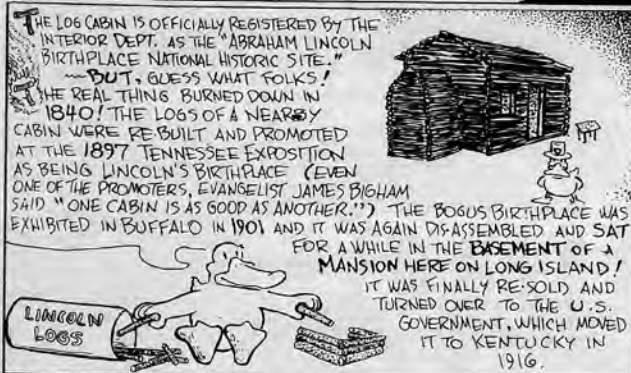 THE LOG CABIN IS OFFICIALLY REGISTERED BY THE
INTERIOR DEPT. AS THE "ABRAHAM LINCOLN
BIRTHPLACE NATIONAL HISTORIC SITE."
—BUT, GUESS WHAT FOLKS!
THE REAL THING BURNED DOWN IN
1840! THE LOGS OF A NEARBY
CABIN WERE RE-BUILT AND PROMOTED
AT THE 1897 TENNESSEE EXPOSITION
AS BEING LINCOLN'S BIRTHPLACE (EVEN
ONE OF THE PROMOTERS, EVANGELIST JAMES BIGHAM
SAID "ONE CABIN IS AS GOOD AS ANOTHER.") THE BOGUS BIRTHPLACE WAS
EXHIBITED IN BUFFALO IN 1901 AND IT WAS AGAIN DISASSEMBLED AND SAT
FOR A WHILE IN THE BASEMENT OF A
MANSION HERE ON LONG ISLAND!
IT WAS FINALLY RE-SOLD AND
TURNED OVER TO THE U.S.
GOVERNMENT, WHICH MOVED
IT TO KENTUCKY IN
1916.
LINCOLN
LOGS